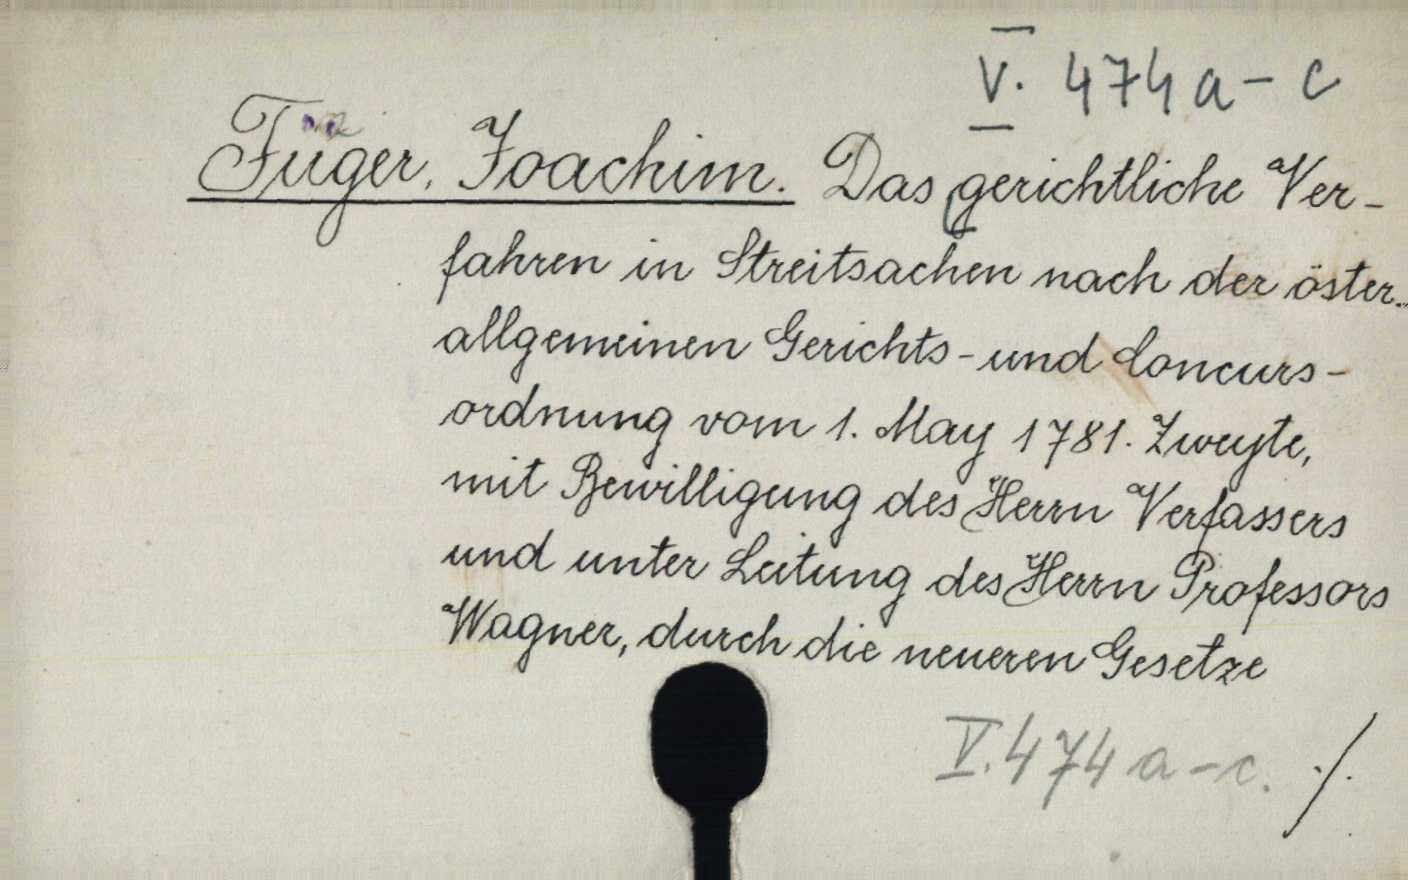 V. 474 a - c
Füger, Joachim. Das gerichtliche Ver-
fahren in Streitsachen nach der öster.
allgemeinen Gerichts- und Concurs-
ordnung vom 1. May 1781. Zweyte,
mit Bewilligung des Herrn Verfassers
und unter Leitung des Herrn Professors
Wagner, durch die neueren Gesetze
V. 474 a - c. ./.